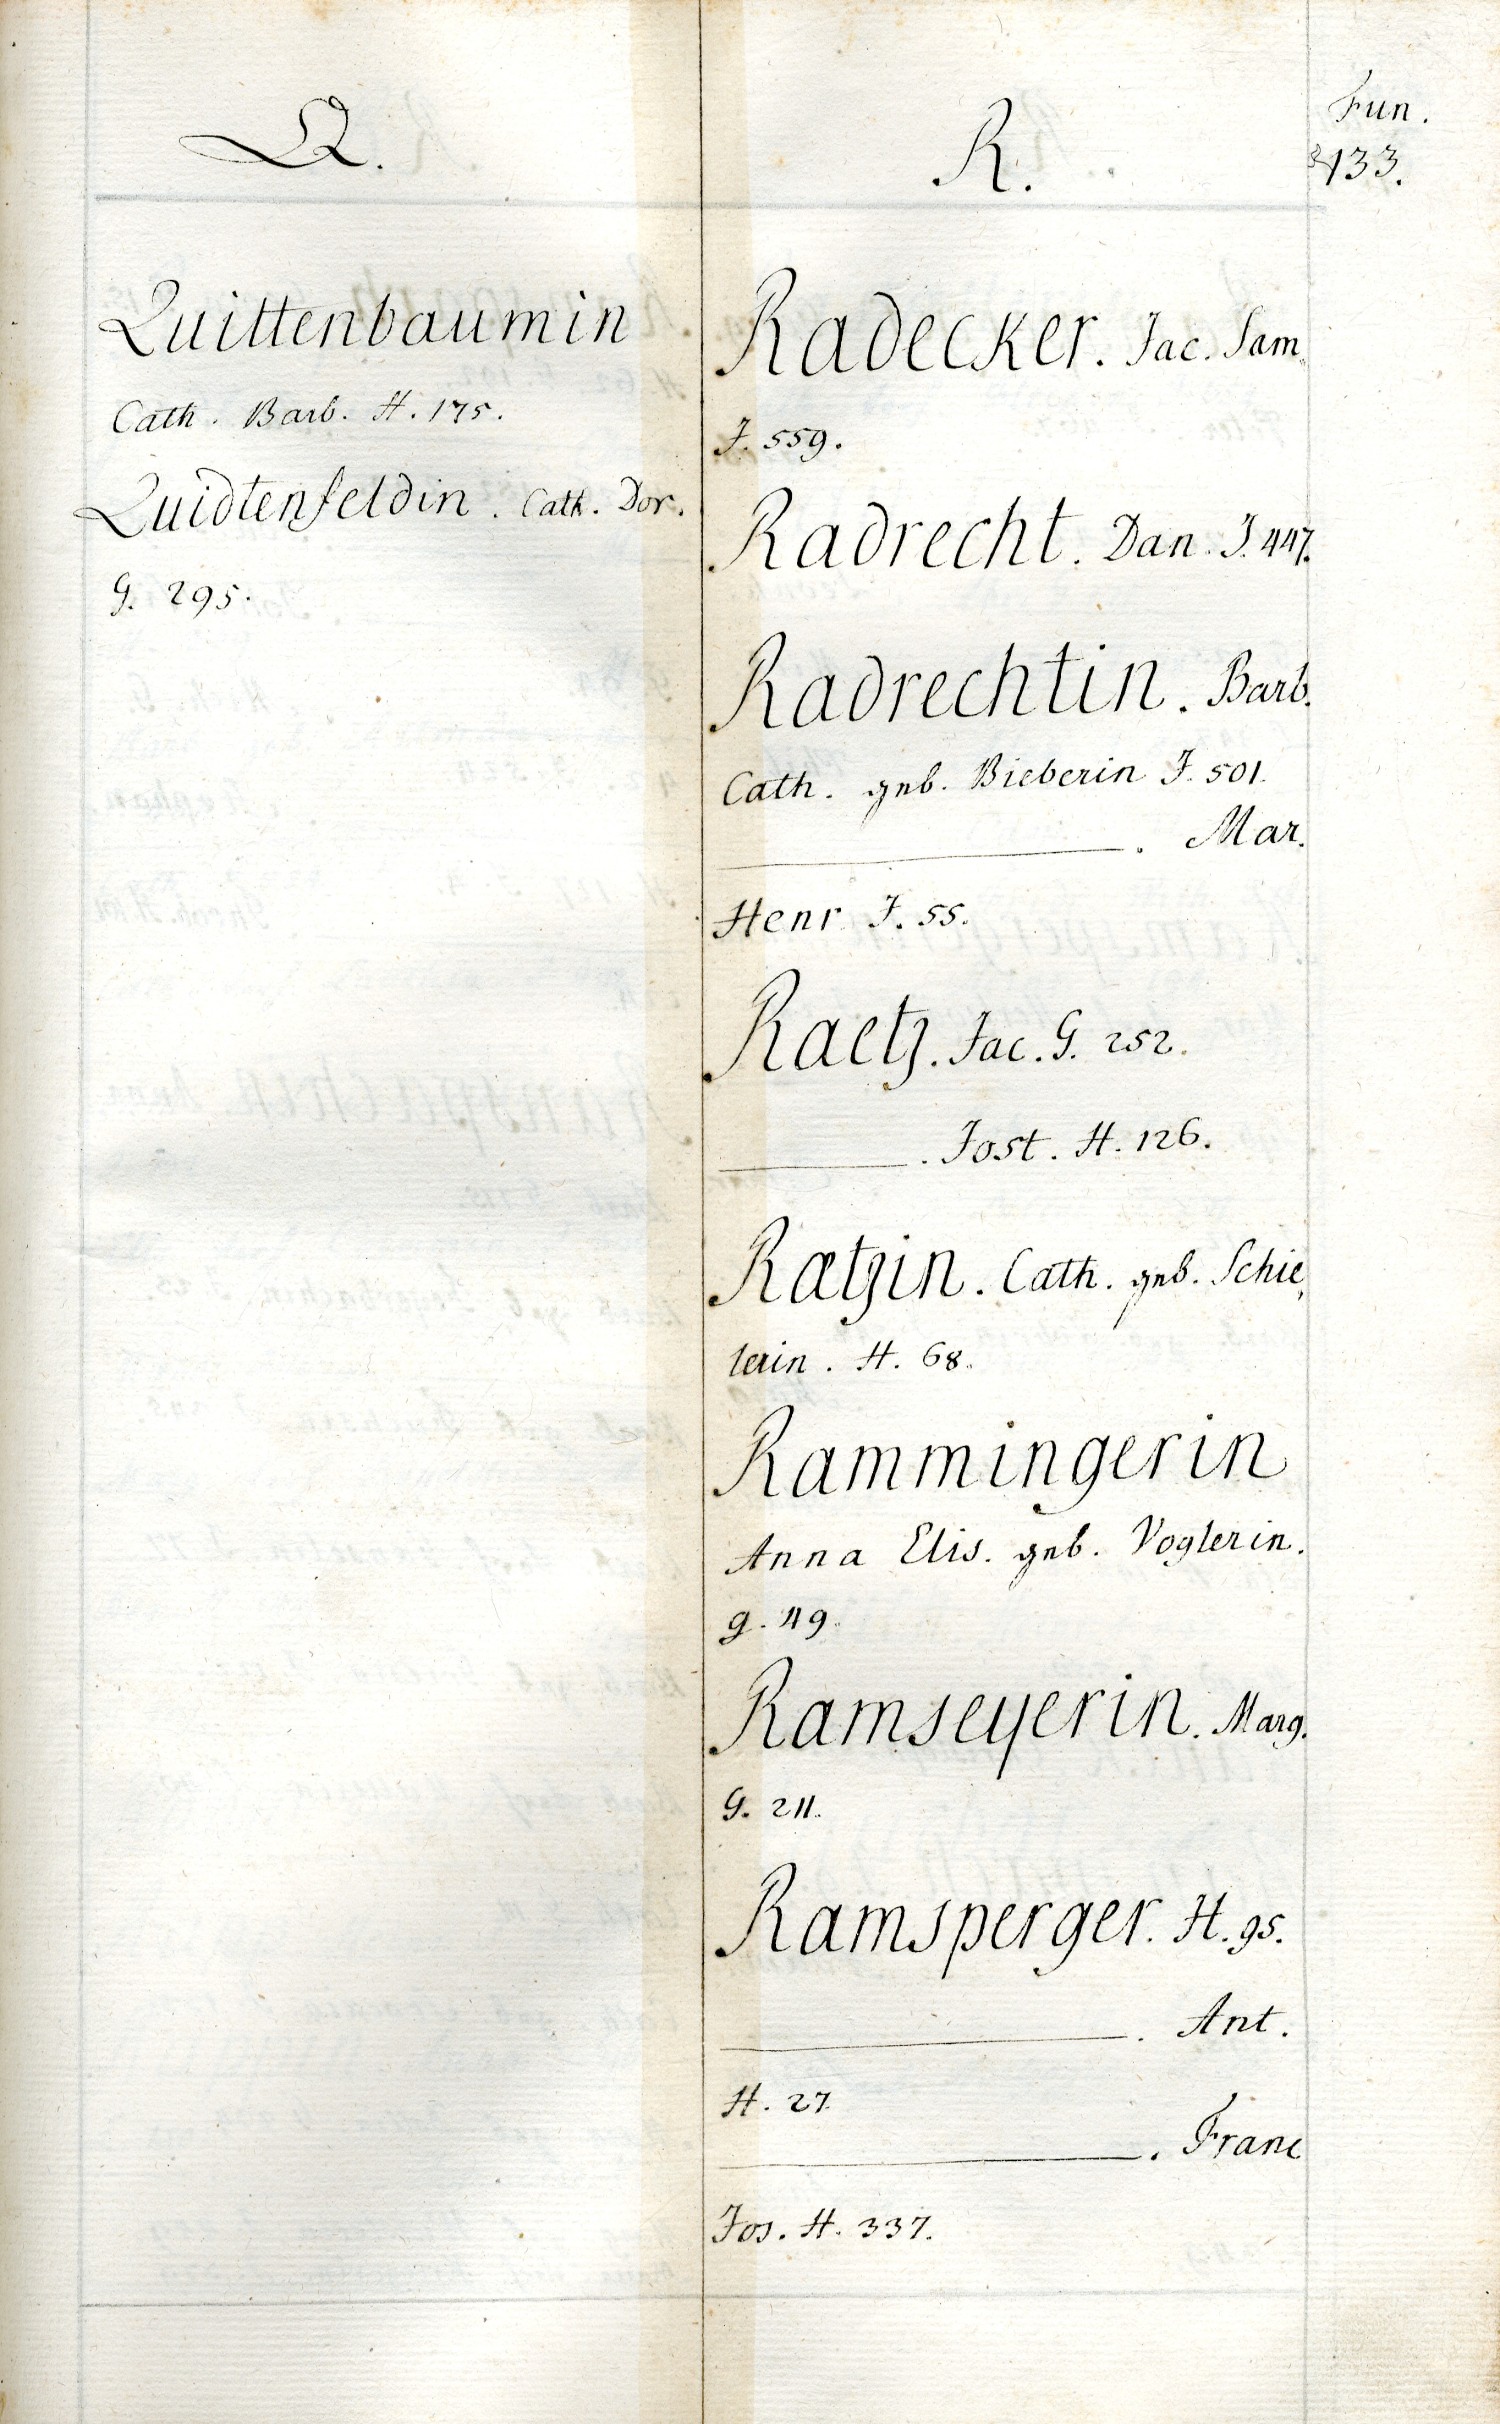 Q.
Quittenbaumin
Cath. Barb. H. 175.
Quidtenfeldin. Cath. Dor.
G. 295.
R.
Radecker. Jac. Sam.
J. 559.
Radrecht. Dan. J. 447.
Radrechtin. Barb.
Cath. geb. Bieberin J. 501.
. Mar.
Henr. J. 55.
Raetz. Jac. G. 252.
. Jost. H. 126.
Rætzin. Cath. geb. Schie,
lerin. H. 68.
Rammingerin
Anna Elis. geb. Voglerin.
g. 49.
Ramseyerin. Marg.
G. 211.
Ramsperger. H. 95.
. Ant.
H. 27.
. Franc
Jos. H. 337.
Fun.
133.